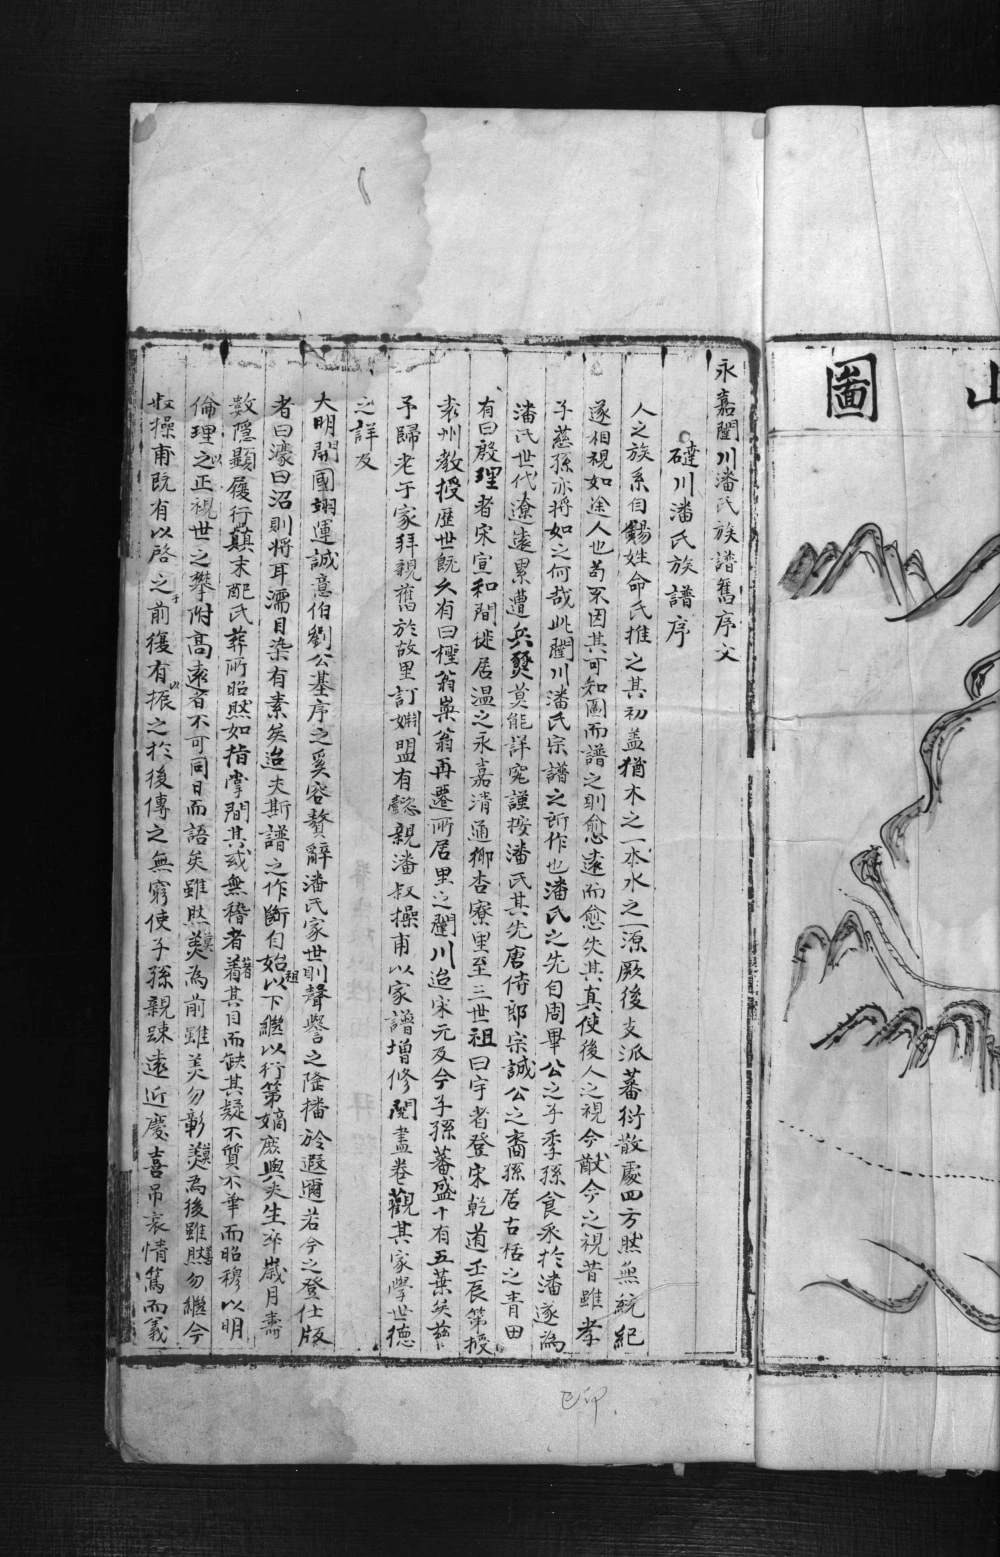 山圖
永嘉𨵿川潘氏族譜舊序文
礃川潘氏族譜序
人之族系自錫姓命氏推之其初盖猶木之一本水之一源厥後支派蕃衍散處四方然無統紀
遂相視如途人也苟不因其可知圖而譜之則愈遠而愈失其真使後人之視今猷今之視昔雖孝
子慈孫亦將如之何哉此𨵿川潘氏宗譜之所作也潘氏之先自周畢公之子季孫食采於潘遂為
潘氏世代遼遠累遭兵燹莫能詳究謹按潘氏其先唐侍郎宗誠公之裔孫居古栝之青田
有曰殷理者宋宣和間徙居温之永嘉清通鄉杏寮里至三世祖曰宇者登宋乾道壬辰第授
袁州教授歷世既久有曰樫翁藁翁再遷所居里之𨵿川迨宋元及今子孫蕃盛十有五葉矣茲
予歸老于家拜親舊於故里訂姻盟有懿親潘叔操甫以家譜增修閱盡卷觀其家學世德
之詳及
大明開國翊運誠意伯劉公基序之奚容贅辭潘氏家世則聲譽之隆播於遐邇若今之登仕版
者曰濠曰沼則將耳濡目染有素矣迨夫斯譜之作斷自始祖以下繼以行第嫡庶與夫生卒歲月壽
數隱顯履行顛末配氏葬所昭然如指掌間其或無稽者著其目而缺其疑不質不華而昭穆以明
倫理以之正視世之攀附高遠者不可同日而語矣雖然莫為前雖美勿彰莫為後雖然勿繼今
叔操甫既有以啓之于前復有以振之於後傳之無窮使子孫親踈遠近慶喜吊哀情篤而義
已印